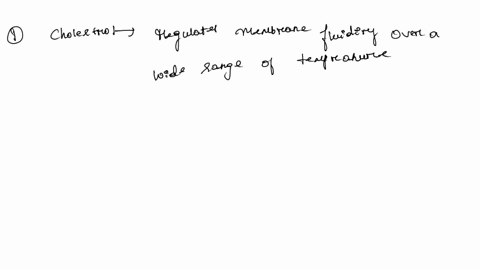 ① Cholestrol → Regulates membrane fluidity over a
wide range of temprature